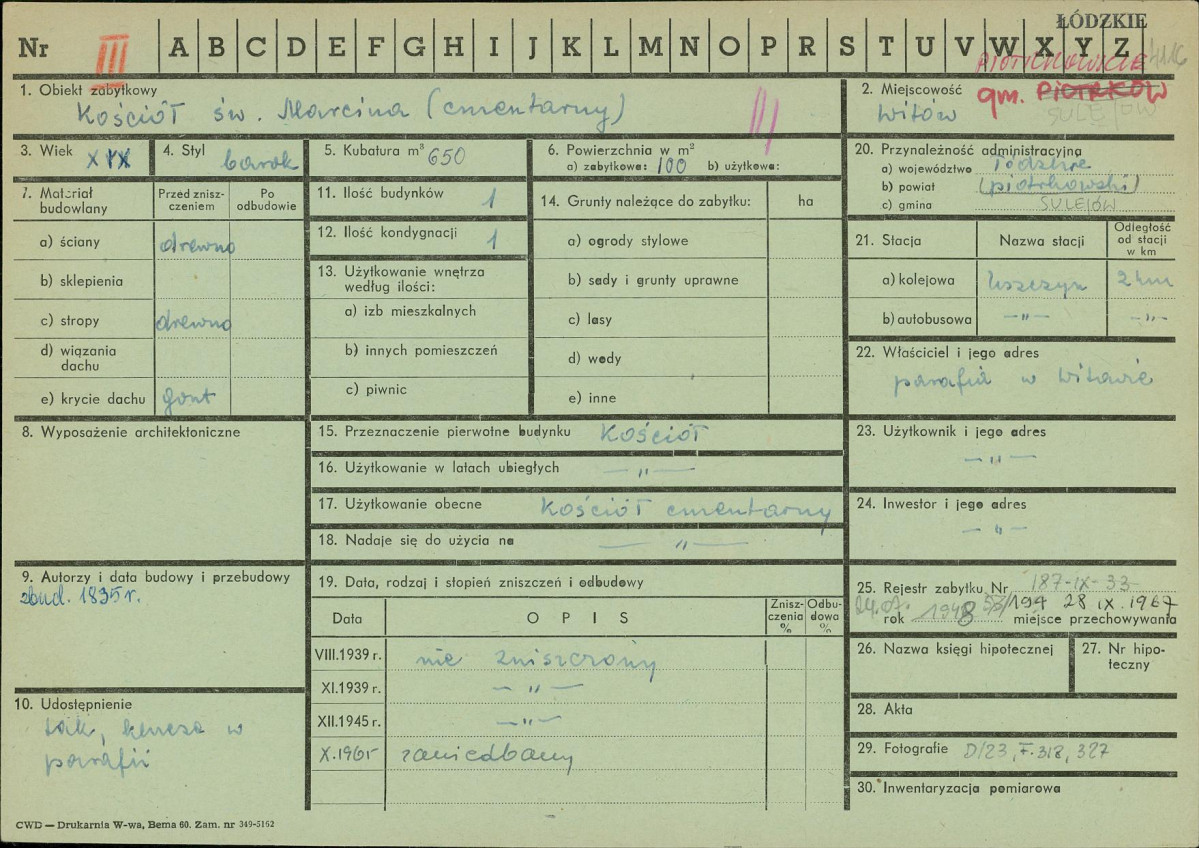 ŁÓDZKIE
Nr III A B C D E F G H I J K L M N O P R S T U V W X Y Z
1. Obiekt zabytkowy
Kościół św. Marcina (cmentarny)
2. Miejscowość gm. PIOTRKÓW
Witów SULEJÓW
3. Wiek XIX
4. Styl barok
5. Kubatura m³ 650
6. Powierzchnia w m²
a) zabytkowa: 100 b) użytkowa:
20. Przynależność administracyjna
a) województwo łódzkie
b) powiat (piotrkowski)
c) gmina SULEJÓW
7. Materiał budowlany
Przed zniszczeniem
Po odbudowie
a) ściany drewno
b) sklepienia
c) stropy drewno
d) wiązania dachu
e) krycie dachu gont
11. Ilość budynków 1
12. Ilość kondygnacji 1
13. Użytkowanie wnętrza
według ilości:
a) izb mieszkalnych
b) innych pomieszczeń
c) piwnic
14. Grunty należące do zabytku: ha
a) ogrody stylowe
b) sady i grunty uprawne
c) lasy
d) wody
e) inne
21. Stacja
Nazwa stacji
Odległość
od stacji
w km
a) kolejowa Uszczyn 2 km
b) autobusowa —„— —„—
22. Właściciel i jego adres
parafia w Witowie
8. Wyposażenie architektoniczne
15. Przeznaczenie pierwotne budynku Kościół
16. Użytkowanie w latach ubiegłych —„—
17. Użytkowanie obecne Kościół cmentarny
18. Nadaje się do użycia na —„—
23. Użytkownik i jego adres
—„—
24. Inwestor i jego adres
—„—
9. Autorzy i data budowy i przebudowy
zbud. 1835 r.
19. Data, rodzaj i stopień zniszczeń i odbudowy
Data
OPIS
Zniszczenia %
Odbudowa %
VIII.1939 r. nie zniszczony
XI.1939 r. —„—
XII.1945 r. —„—
X.1965 zaniedbany
25. Rejestr zabytku Nr 187-IX-33
194 28 IX. 1967
rok 1948 miejsce przechowywania
26. Nazwa księgi hipotecznej
27. Nr hipoteczny
28. Akta
29. Fotografie D/23, F. 318, 327
30. Inwentaryzacja pomiarowa
10. Udostępnienie
tak, klucze w
parafii
CWD — Drukarnia W-wa, Bema 60. Zam. nr 349-5162